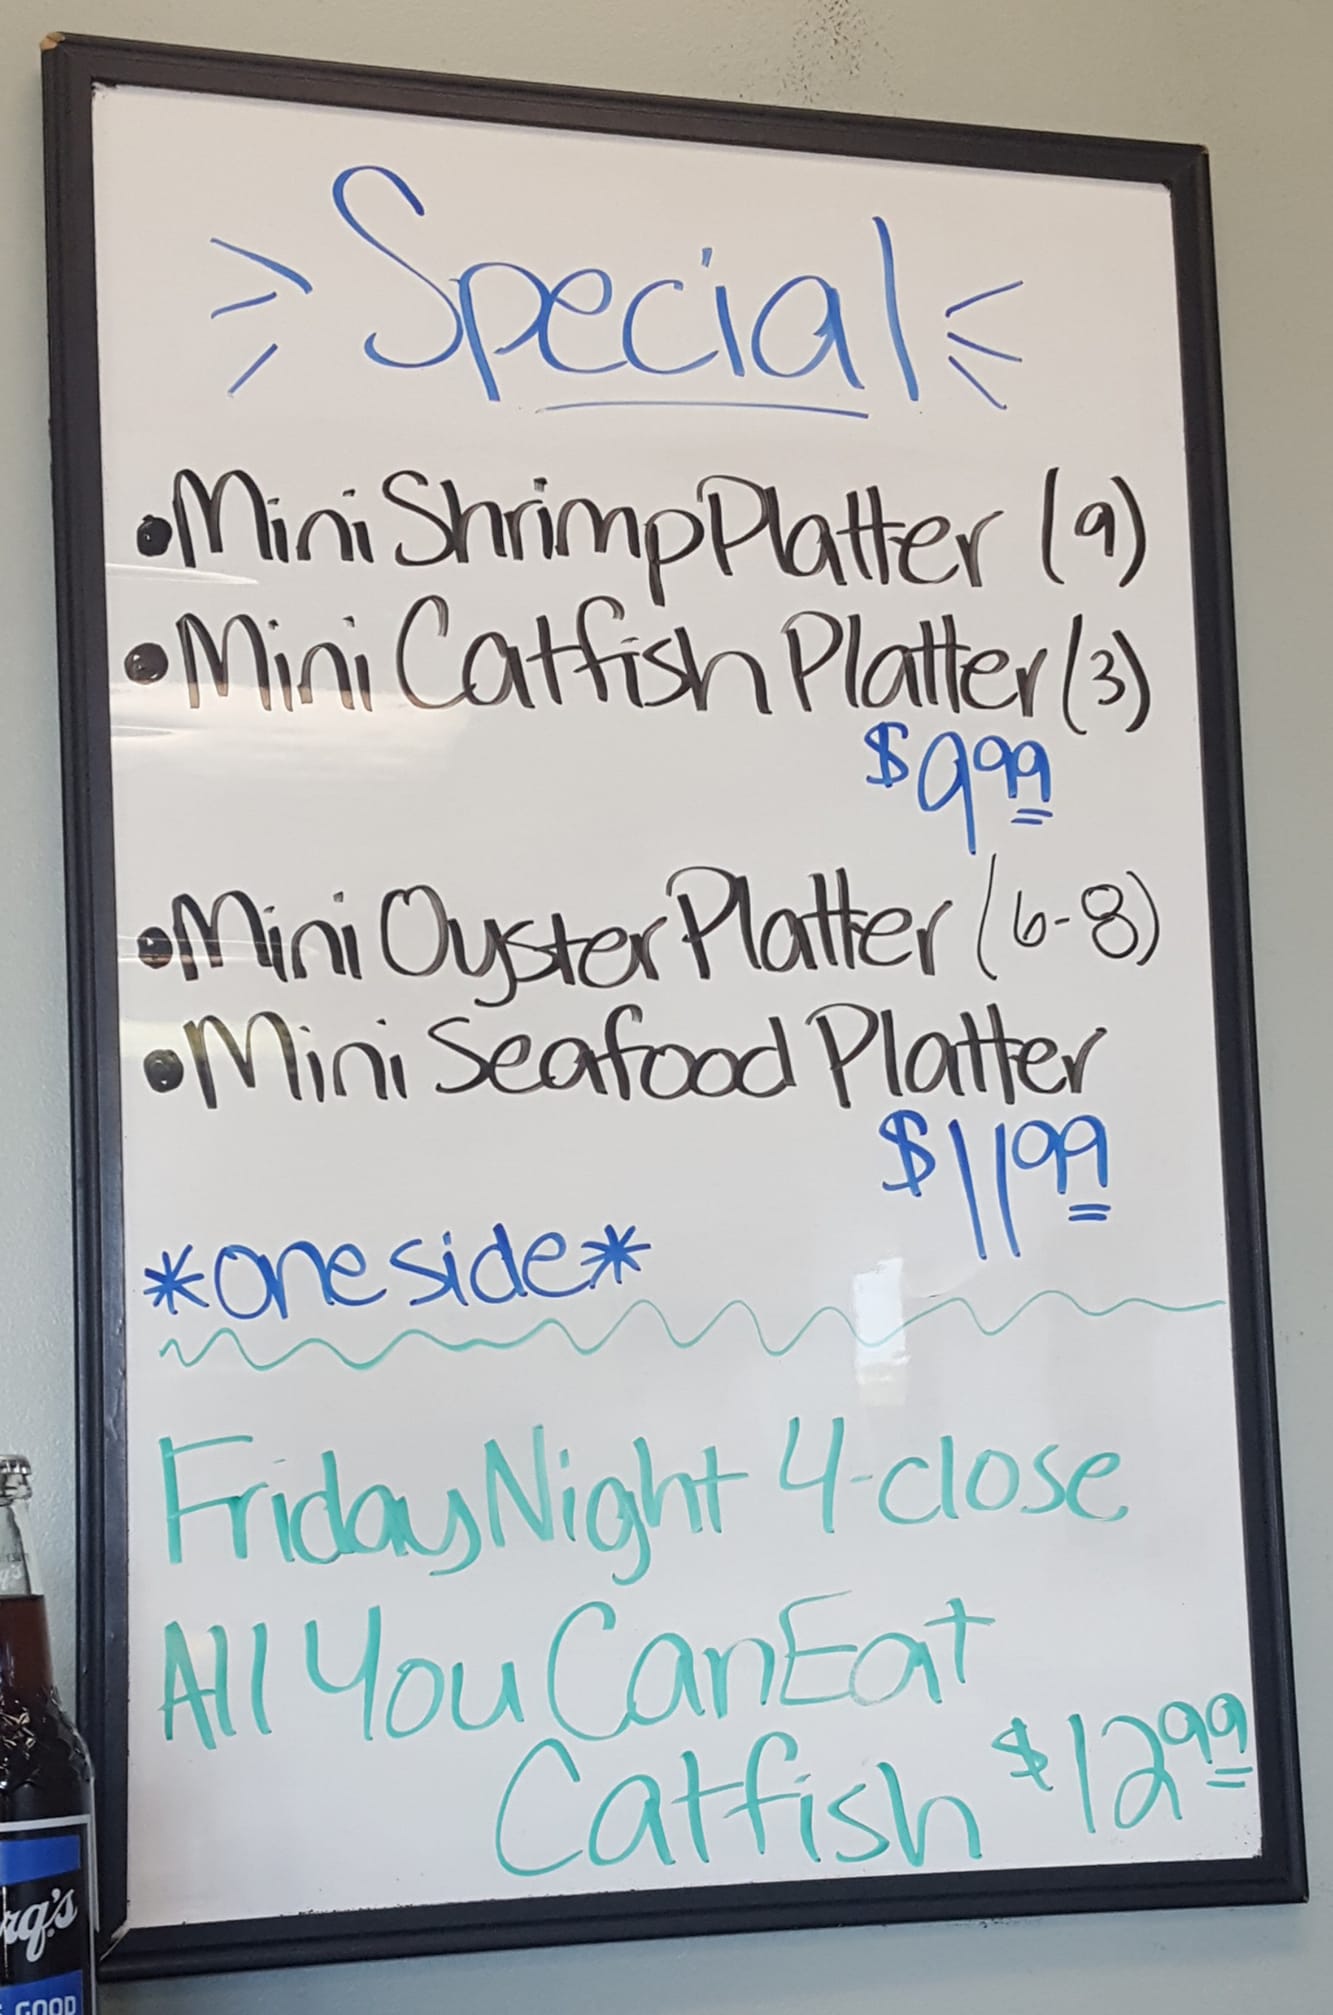 Special
•Mini Shrimp Platter (9)
•Mini Catfish Platter (3)
$9.99
•Mini Oyster Platter (6-8)
•Mini Seafood Platter
$11.99
*one side*
Friday Night 4-close
All You Can Eat
Catfish $12.99
rq's
GOOD